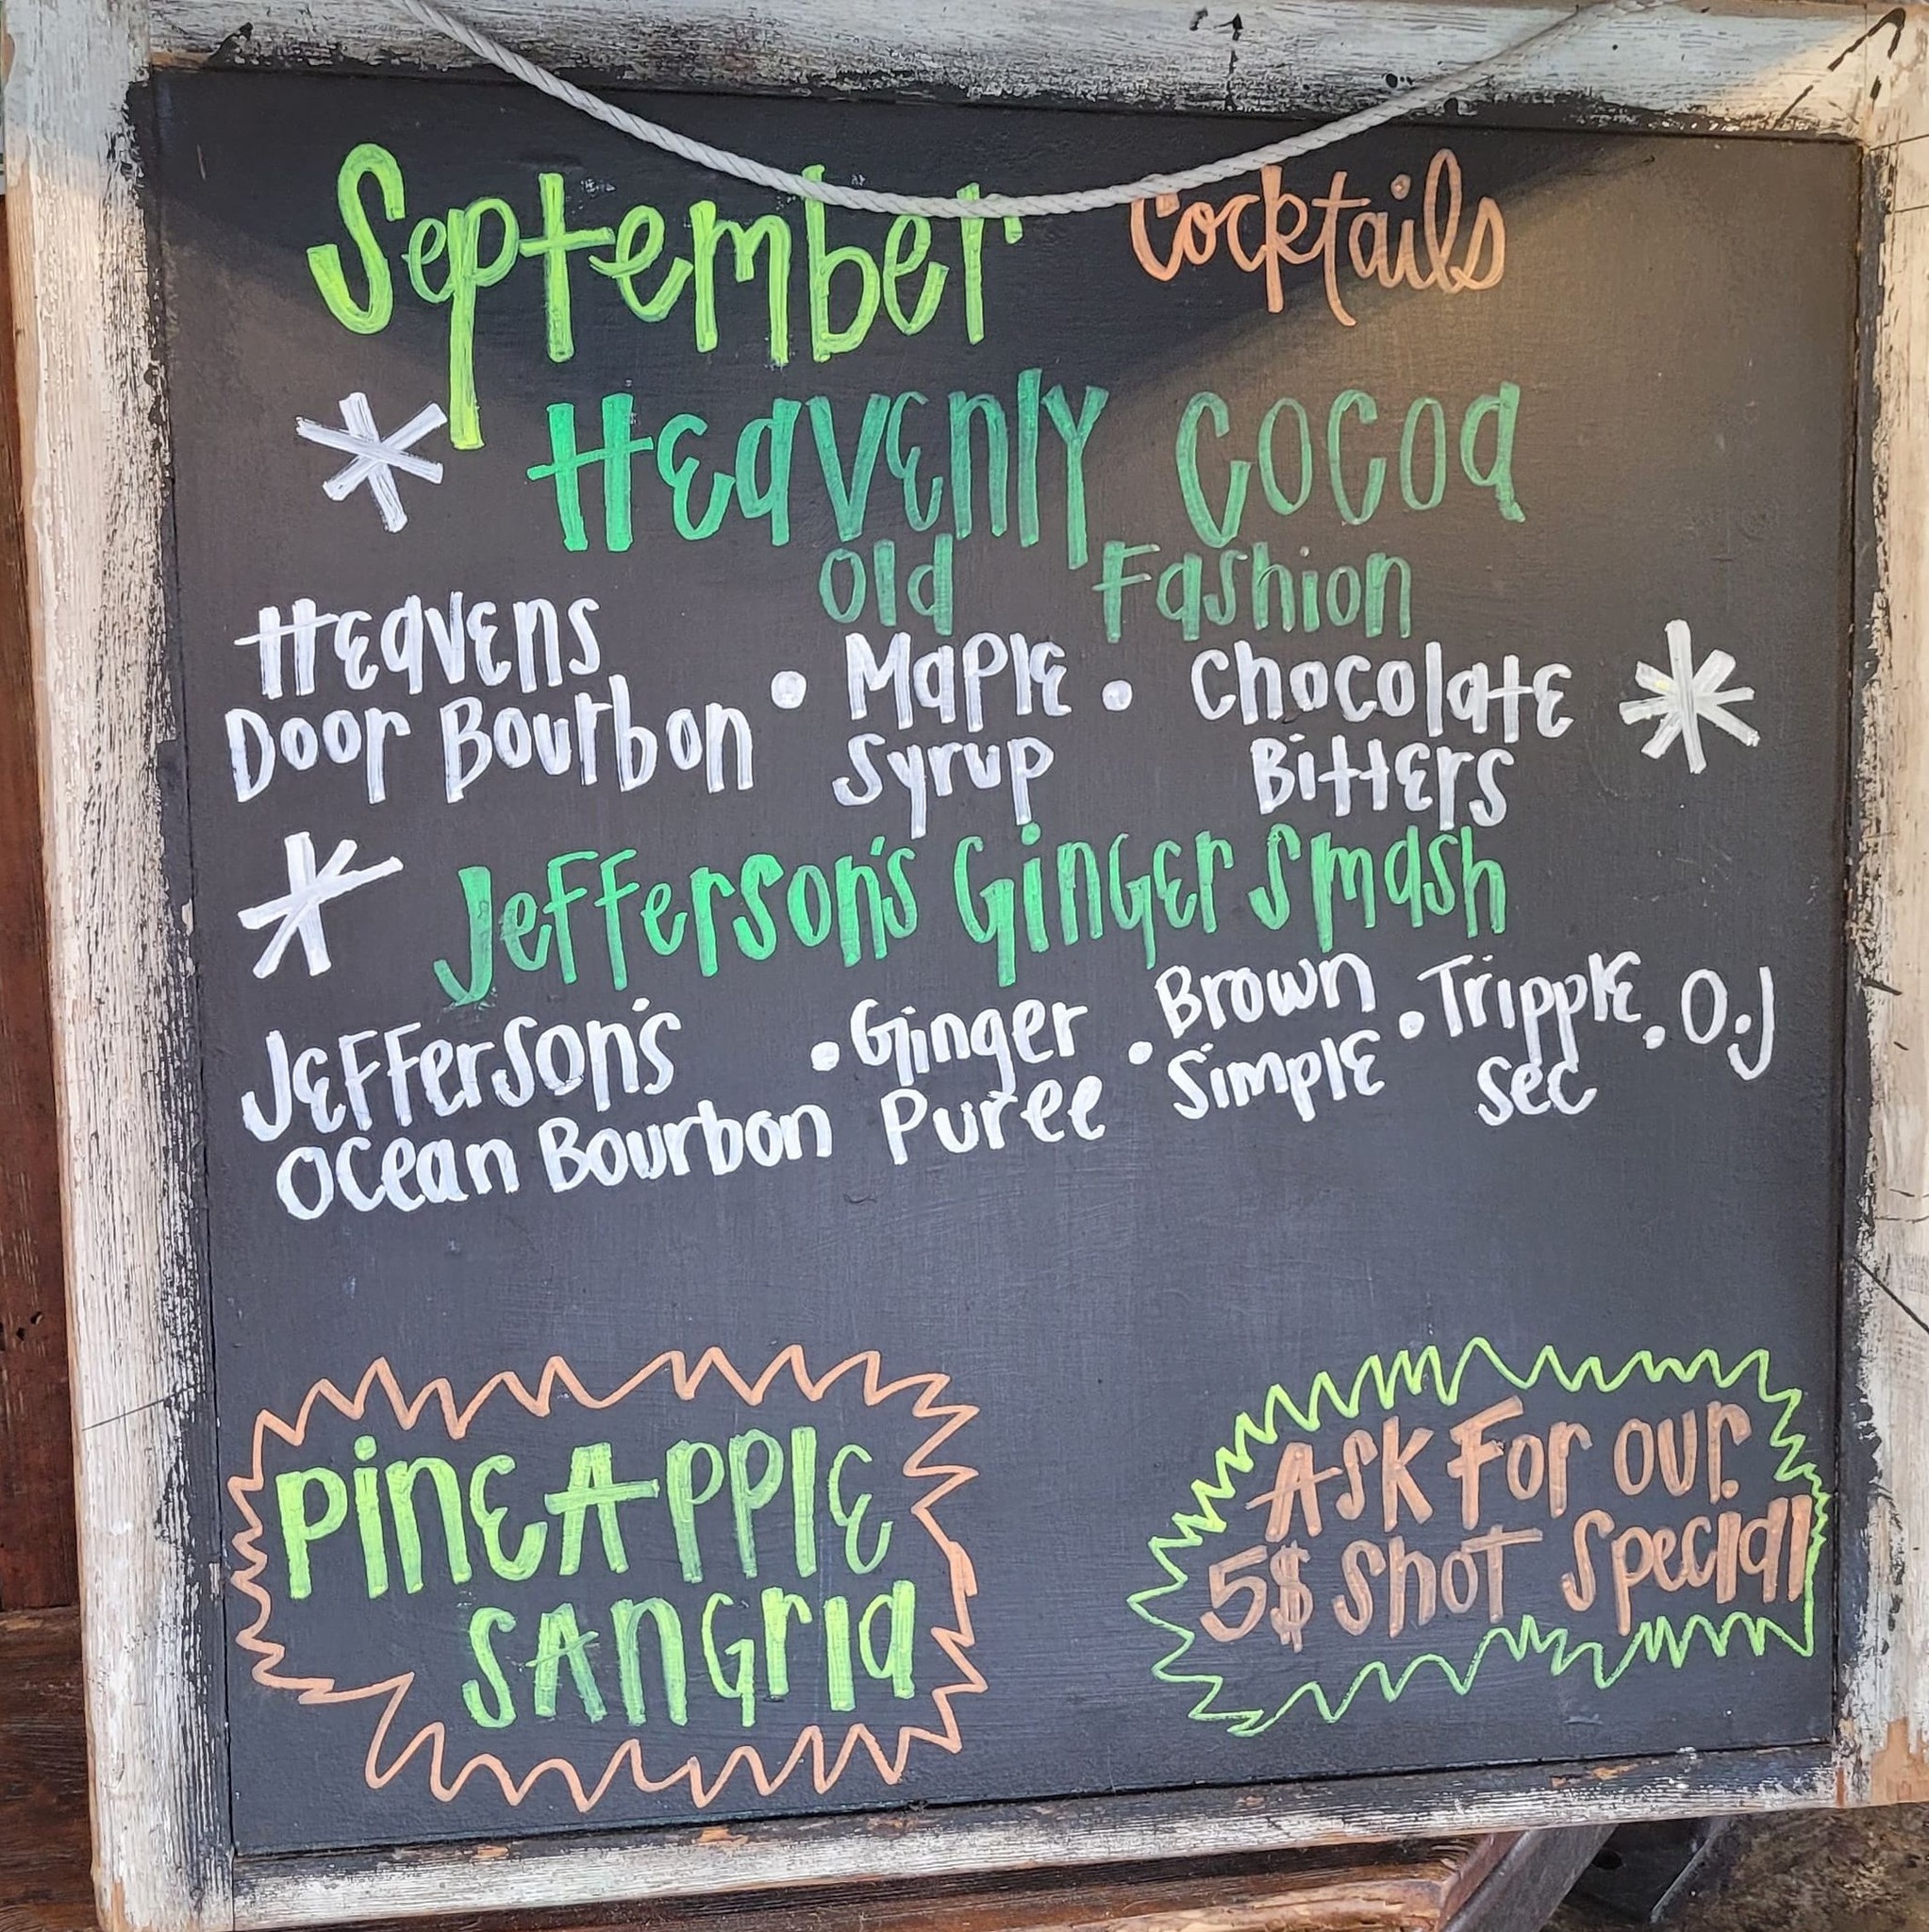 September Cocktails
Heavenly Cocoa
Old Fashion
Heavens
Door Bourbon • Maple Syrup • Chocolate Bitters
Jefferson's Ginger Smash
Jefferson's Ocean Bourbon • Ginger Puree • Brown Simple • Tripple Sec • O.J
Pineapple
Sangria
Ask For our
5$ Shot Special